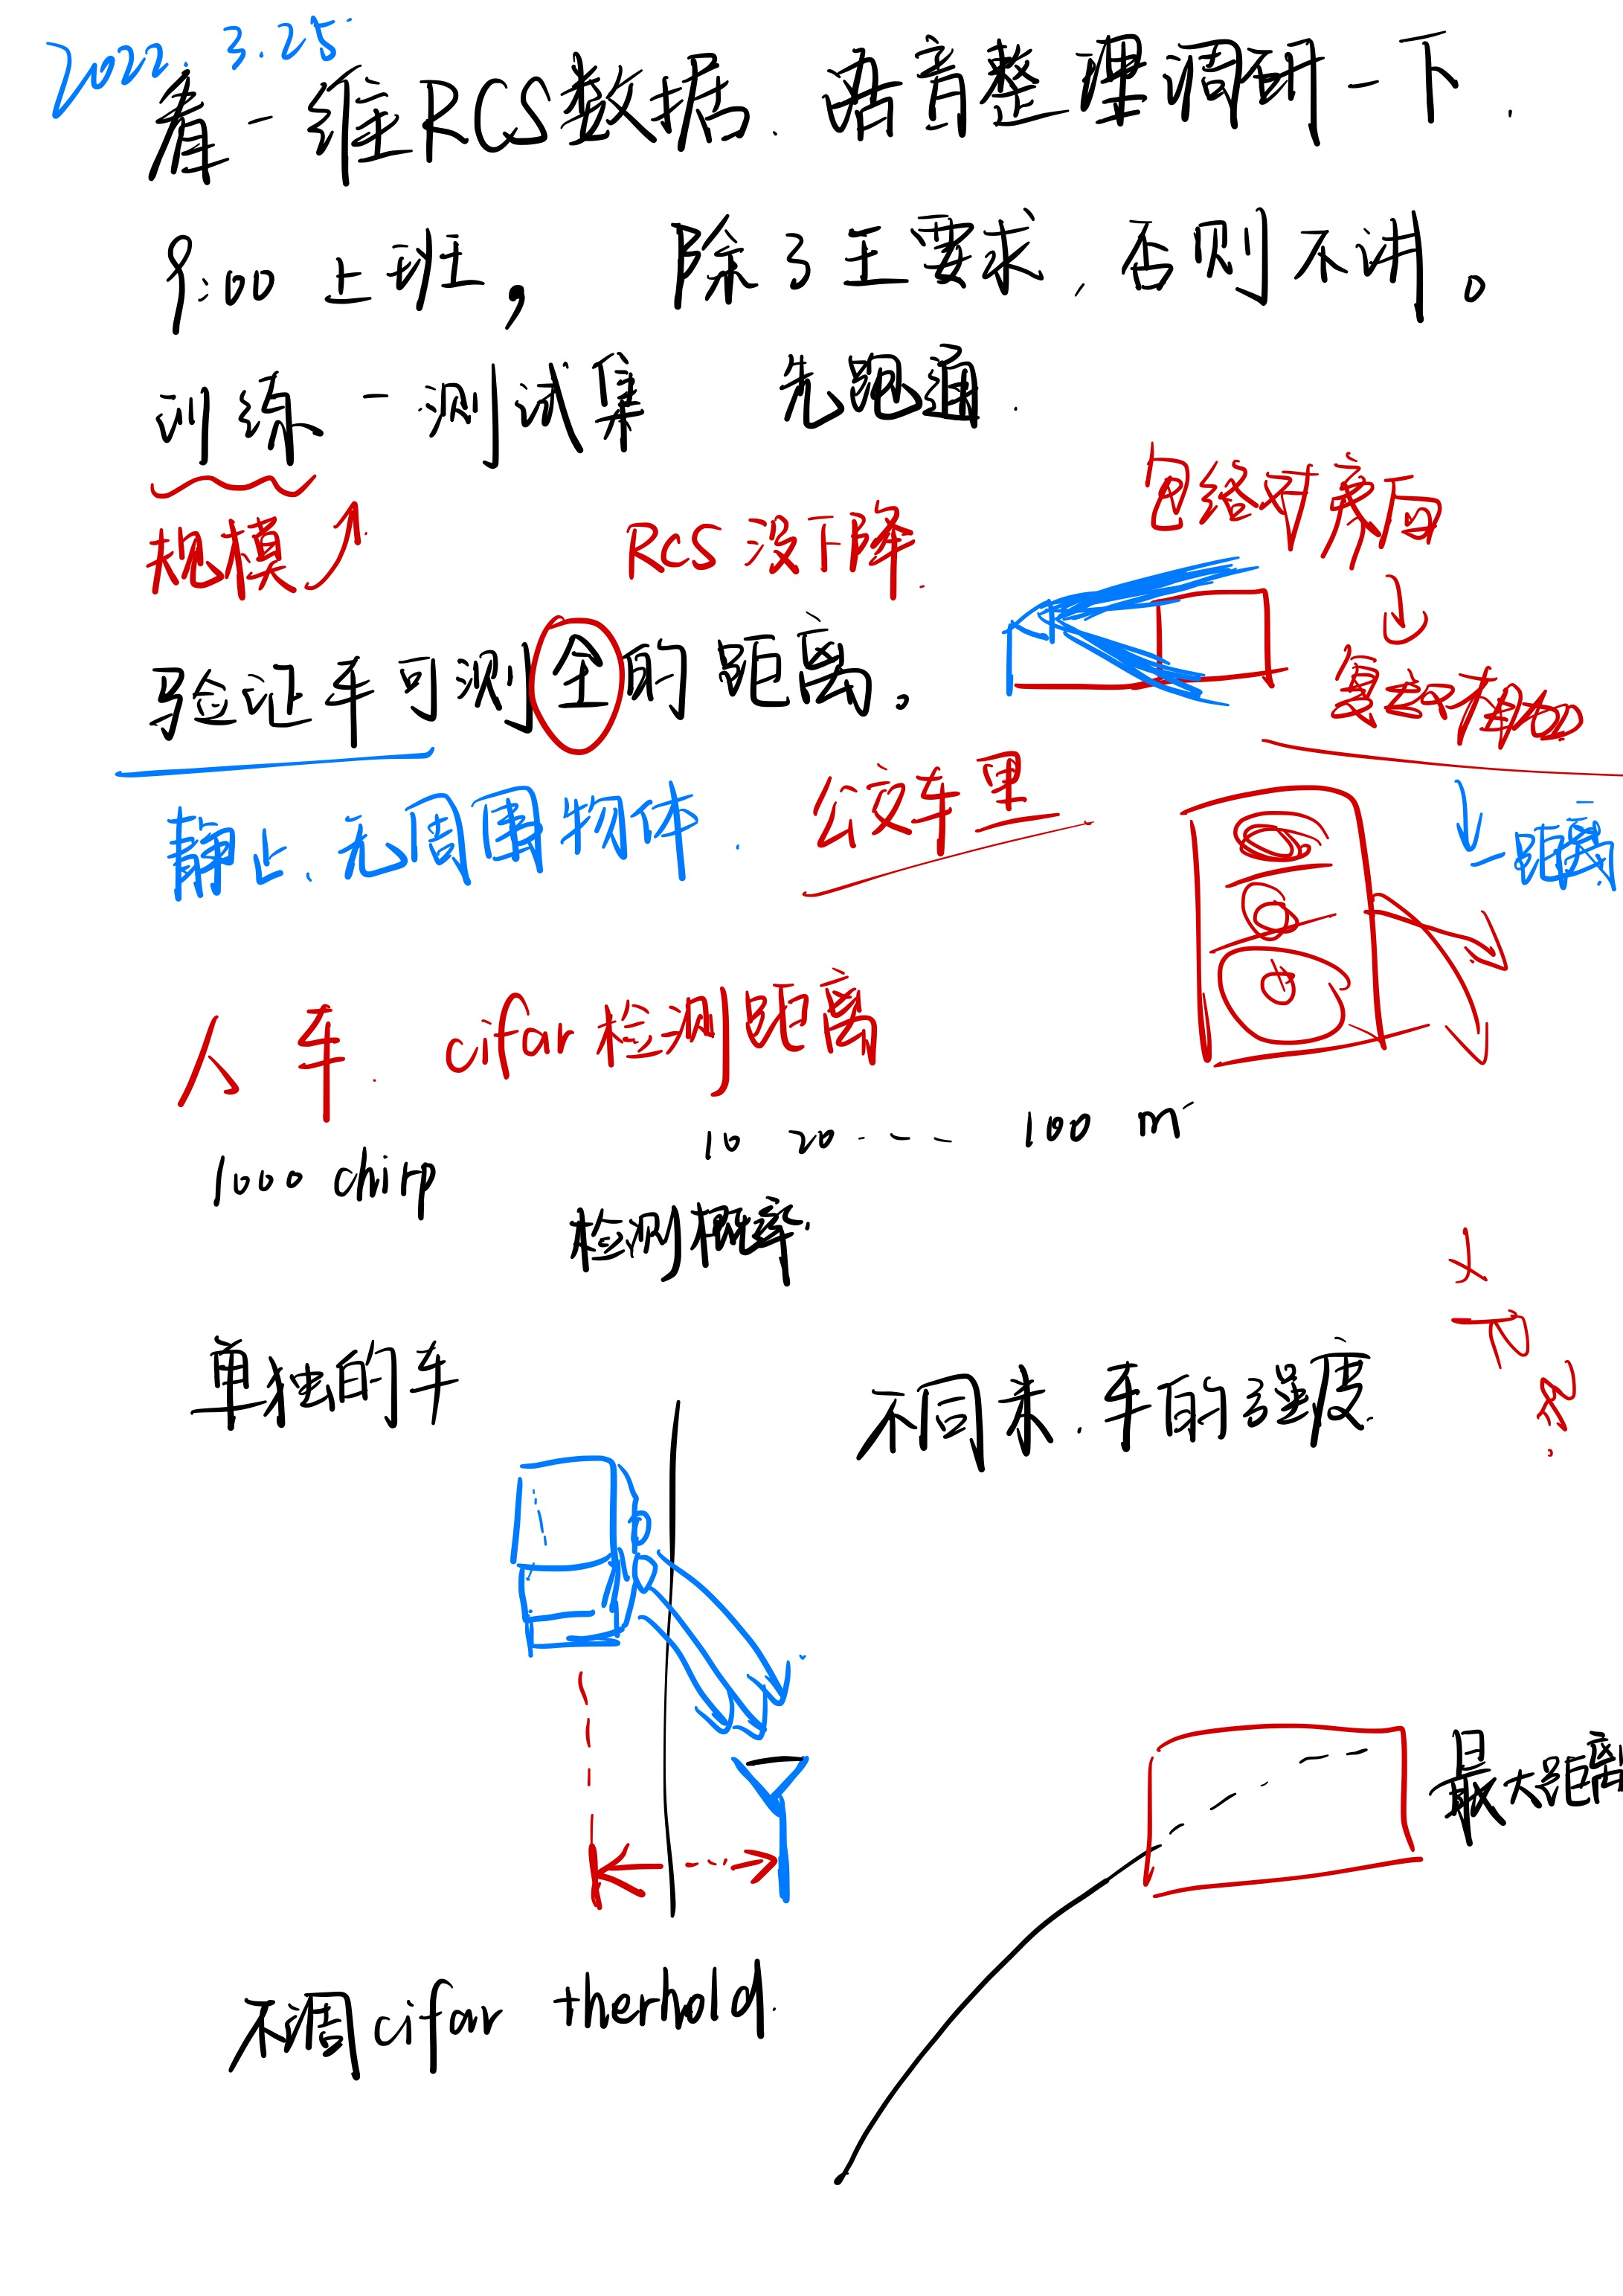 2022.3.25
看一维RCS数据. 语音整理调研一下.
9:00上班, 除了主要求, 否则不讲。
训练-测试集 先跑通.
规模
RCS没下降.
包络对齐后
验证车可测全的距离.
静止. 无周围物体.
公交车里
距离
人 车. cifar检测距离
1000 chirp
10 20 --- 100 m
检测概率.
单独的车
不同米. 车的强度
最大距离
不调cifar therhold.